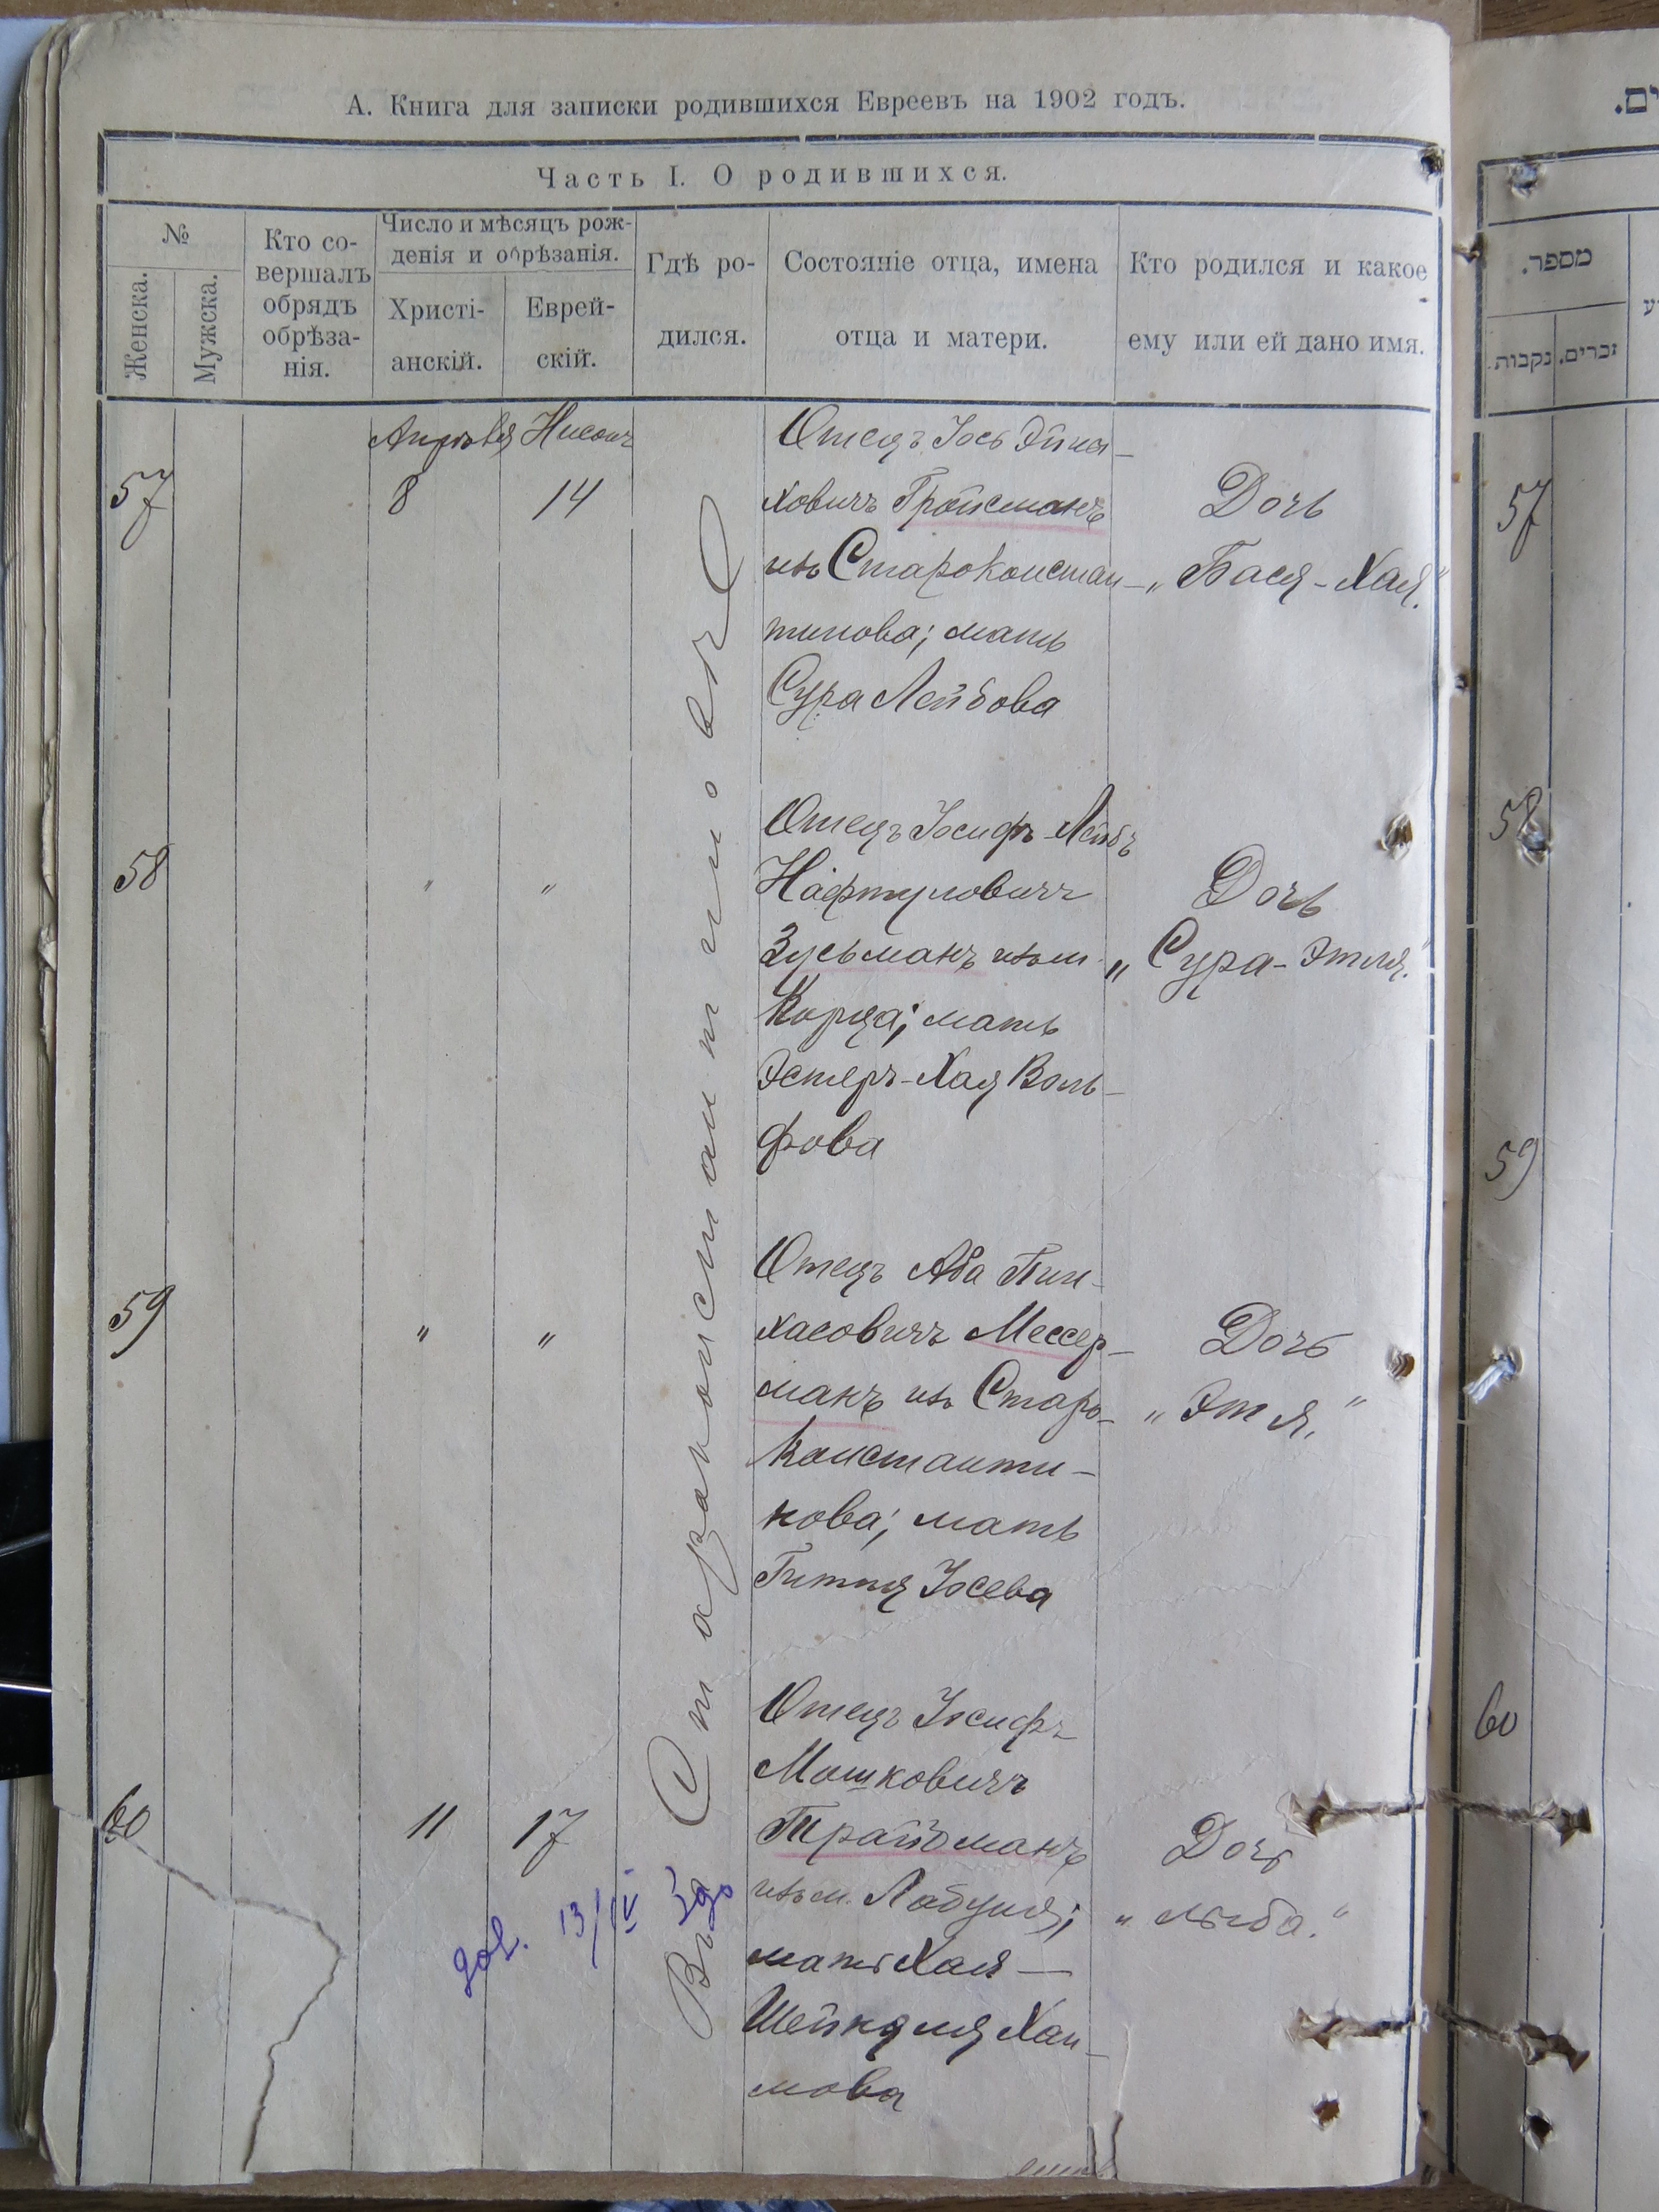 А. Книга для записки родившихся Евреевъ на 1902 годъ.
Часть I. О родившихся.
№
Женска.
Мужска.
Кто со-
вершалъ
обрядъ
обрѣза-
нія.
Число и мѣсяцъ рож-
денія и обрѣзанія.
Христі-
анскій.
Еврей-
скій.
Гдѣ ро-
дился.
Состояніе отца, имена
отца и матери.
Кто родился и какое
ему или ей дано имя.
Апрѣля Нисонъ
57
8
14
Отецъ Іось
ховичъ Гройсманъ
изъ Староконстан-
тинова; мать
Сура Лейбова
Дочь
„Бася-Хая.“
58
" "
Отецъ Іосифъ-Лейбъ
Нафтуловичъ
Зусьманъ изъ м.
Корца; мать
Эстеръ-Хая Воль-
фова
Дочь
„Сура-Этля.“
59
" "
Отецъ Аба Пин-
хасовичъ Мессер-
манъ изъ Старо-
константи-
нова; мать
Гитля Іосева
Дочь
„Этя.“
60
11
17
Отецъ Іосифъ
Мошковичъ
Тройбманъ
изъ м. Лабуня;
мать Хая-
Шейндля Хаи-
мова
Дочь
„Люба.“
Староконстантиновѣ
13/IV
ים.
מספר.
נקבות.
זכרים.
57
58
59
60